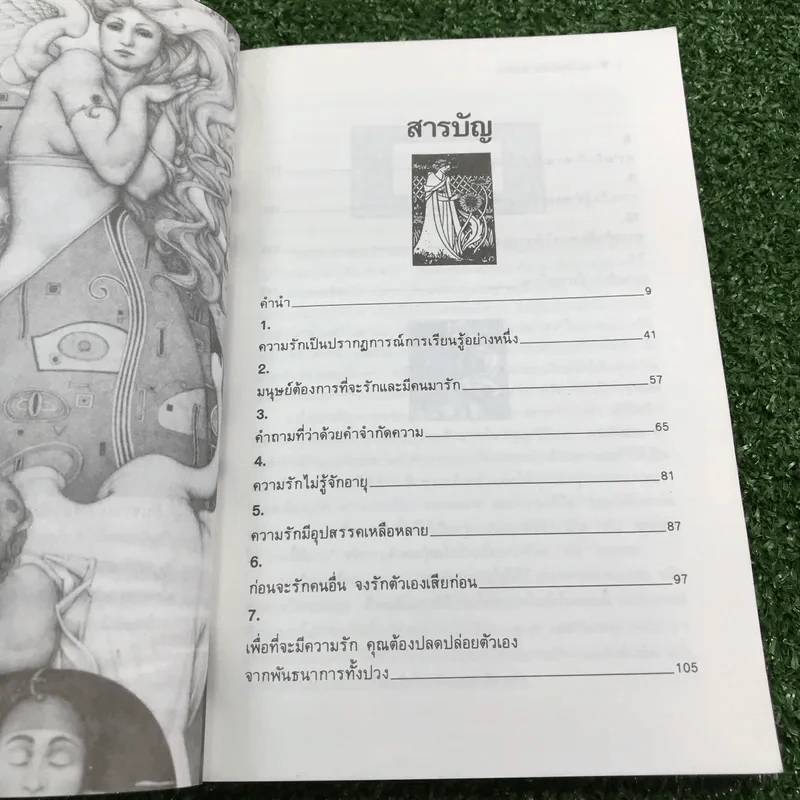 สารบัญ
คำนำ 9
1.
ความรักเป็นปรากฏการณ์การเรียนรู้อย่างหนึ่ง 41
2.
มนุษย์ต้องการที่จะรักและมีคนมารัก 57
3.
คำถามที่ว่าด้วยคำจำกัดความ 65
4.
ความรักไม่รู้จักอายุ 81
5.
ความรักมีอุปสรรคเหลือหลาย 87
6.
ก่อนจะรักคนอื่น จงรักตัวเองเสียก่อน 97
7.
เพื่อที่จะมีความรัก คุณต้องปลดปล่อยตัวเอง
จากพันธนาการทั้งปวง 105